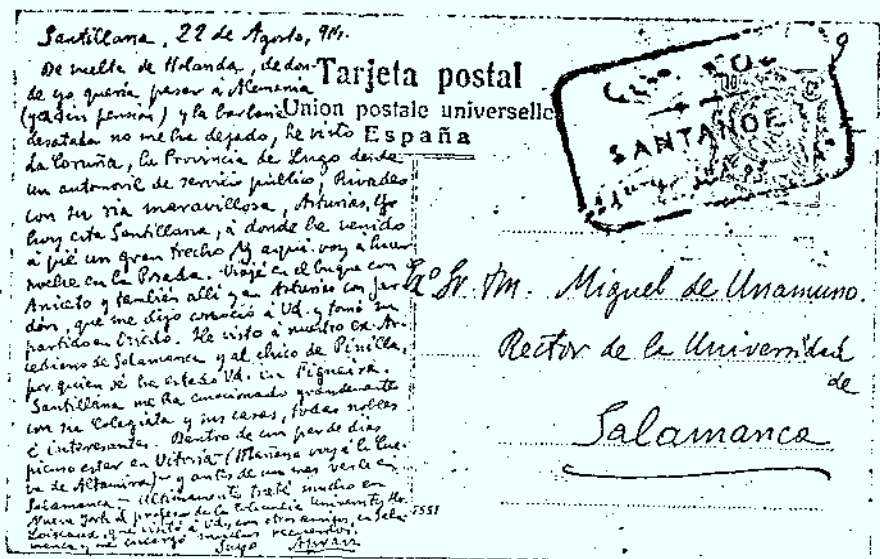 Santillana, 22 de Agosto, 914.
De vuelta de Holanda, de don-
de yo quería pasar a Alemania
(ya sin pensión) y la barbarie
desatada no me ha dejado, he visto
La Coruña, la Provincia de Lugo desde
un automovil de servicio público, Rivadeo
con su ria maravillosa, Asturias, y
hoy esta Santillana, á donde he venido
á pié un gran trecho y aqui voy a hacer
noche en la Posada. Viajé en el buque con
Aniceto y también alli y en Asturias con
dón, que me dijo conoció á Vd. y tomó su
partido en He visto á nuestro ex-Ar-
cediano de Salamanca y al chico de Pinilla,
por quien sé ha estado Vd. en Figueira.
Santillana me ha emocionado grandemente
con su Colegiata y sus casas, todas nobles
é interesantes. Dentro de un par de dias
pienso estar en Vitoria (Mañana voy á la Cue-
va de Altamira) y antes de un mes verle en
Salamanca - Ultimamente traté mucho en
Nueva York al profesor de la Columbia University Mr.
Loiseaux, que visitó á Vd., con otros amigos, en Sala-
manca y me encargó muchos recuerdos.
Suyo
Tarjeta postal
Union postale universelle
España
SANTANDE
Sr. Dn. Miguel de Unamuno.
Rector de la Universidad
de
Salamanca